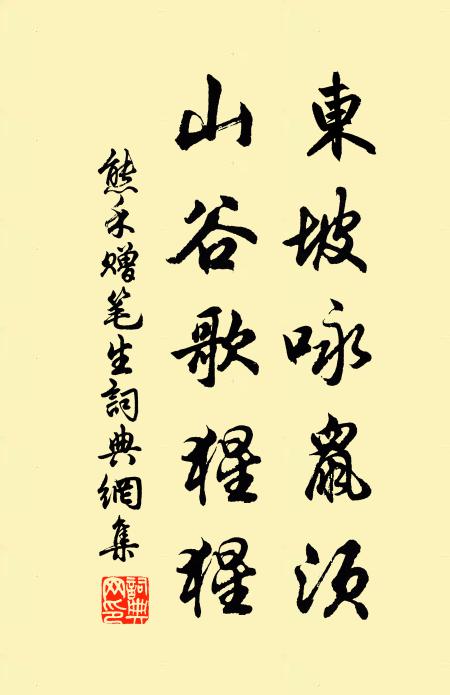 東坡咏鼠須
山谷歌猩猩
熊禾贈笔生詞典網集
詞典网印